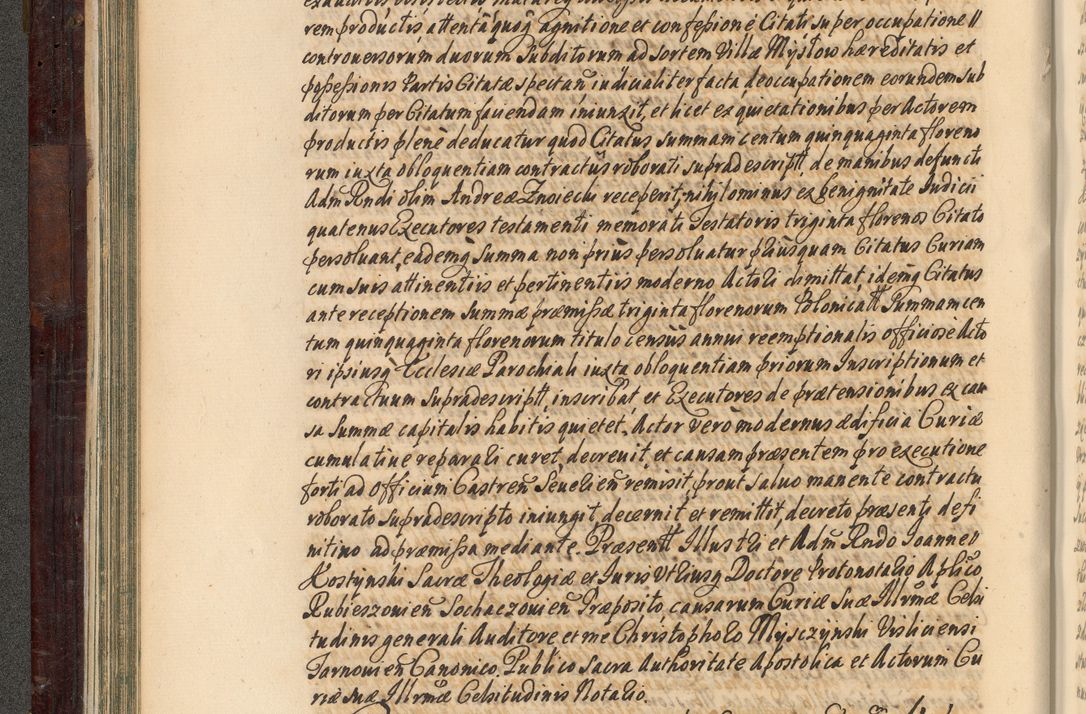 rem productis, attentaquoq agnitione et confessione Citati super occupatione
controversorum duorum Subditorum ad sortem Villæ Mysłow hæreditatis et
possessionis Partis Citatæ spectan̄ iudicialiter facta deoccupationem eorundem sub
ditorum per Citatum faciendam iniunxit, et licet ex quietationibus per Actorem
productis plene deducatur quod Citatus summam centum quinquaginta floreno
rum iuxta obloquentiam contractus roborati supradescriptt, de manibus defuncti
Adm Rndi olim Andreæ Znoiecki receperit, nihilominus ex benignitate Iudicii
quatenus Executores testamenti memorati Testatoris triginta florenos Citato
persoluant, eademq summa non prius persoluatur priusquam Citatus Curiam
cum suis attinentiis et pertinentiis moderno Actori dimittat, idemq Citatus
ante receptionem Summæ præmissæ triginta florenorum Polonicatt Summam cen
tum quinquaginta florenorum titulo census annui reemptionalis officiose Acto
ri ipsiusq Ecclesiæ Parochiali iuxta obloquentiam priorum Inscriptionum et
contractuum supradescriptt, inscribat et Executores de prætensionibus ex cau
sa summæ capitalis habitis quietet. Actor vero modernus ædificia Curiæ
cumulative reparari curet, decrevit, et causam præsentem pro executione
forti ad officium Castren̄ Sevelien̄ remisit, prout salvo manente contractu
roborato supradescripto iniungit, decernit et remittit, decreto præsenti defi
nitivo ad præmissa mediante. Præsentt Illustri et Adm Rndo Ioanne
Kostynski Sacræ Theologiæ et Iuris Vtriusq Doctore Protonotario Aplico
Rubieszovien̄ Sochaczovien̄ Præposito, causarum Curiæ Suæ Illrmæ Celsi
tudinis generali Auditore et me Christophoro Mysczynski Visliciensi
Tarnovien̄ Canonico. Publico Sacra Authoritate Apostolica et Actorum Cu
riæ suæ Illrmæ Celsitudinis Notario.